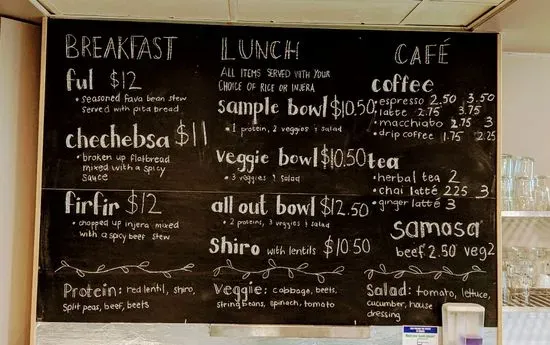 BREAKFAST
ful $12
• seasoned fava bean stew
served with pita bread
chechebsa $11
• broken up flatbread
mixed with a spicy
sauce
firfir $12
• chopped up injera mixed
with a spicy beef stew
LUNCH
ALL ITEMS SERVED WITH YOUR
CHOICE OF RICE OR INJERA
sample bowl $10.50
• 1 protein, 2 veggies & salad
veggie bowl $10.50
• 3 veggies & salad
all out bowl $12.50
• 2 proteins, 3 veggies & salad
shiro with lentils $10.50
CAFÉ
coffee
• espresso 2.50 3.50
• latte 2.75 3.75
• macchiato 2.75 3
• drip coffee 1.75 2.25
tea
• herbal tea 2
• chai latté 2.25 3
• ginger latté 3
samosa
beef 2.50 veg 2
Protein: red lentil, shiro,
split peas, beef, beets
Veggie: cabbage, beets,
string beans, spinach, tomato
Salad: tomato, lettuce,
cucumber, house
dressing